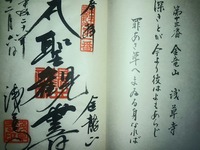 第十三番 金龍山 浅草寺
深きとが今より後はよもあらじ
罪あさ草へまゐる身なれば
奉拝
金龍山
聖観世音
浅草寺